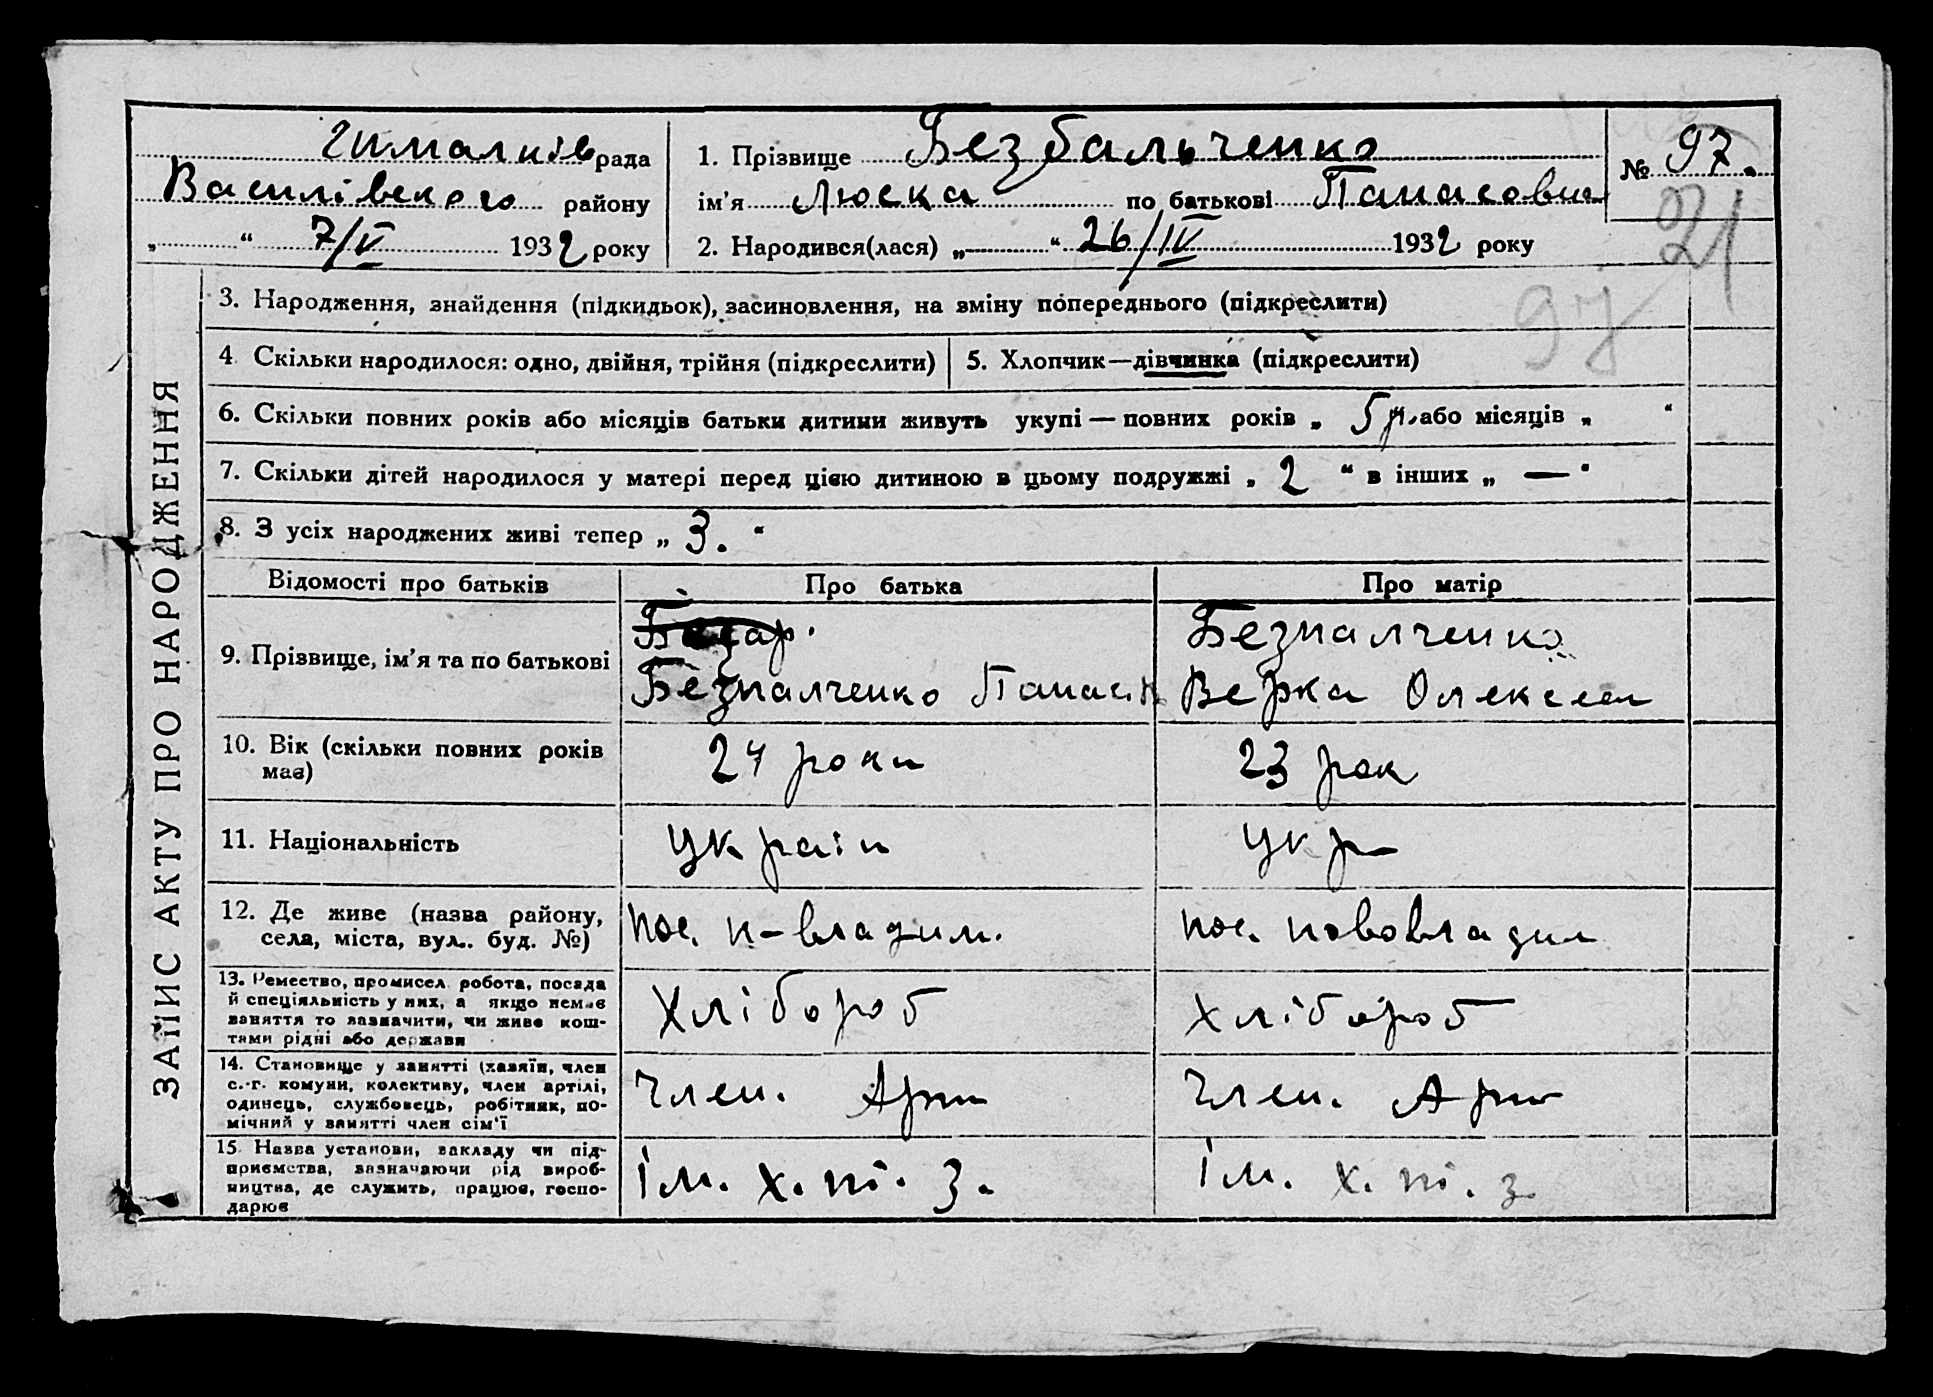 рада
Василівского району
„ “ 7/V 1932 року
1. Прізвище Безбальченко
ім'я Люска по батькові Панасовна
2. Народився(лася) „ “ 26/IV 1932 року
№ 97.
21
97
ЗАПИС АКТУ ПРО НАРОДЖЕННЯ
3. Народження, знайдення (підкидьок), засиновлення, на зміну попереднього (підкреслити)
4. Скільки народилося: одно, двійня, трійня (підкреслити)
5. Хлопчик—дівчинка (підкреслити)
6. Скільки повних років або місяців батьки дитини живуть укупі — повних років „ 5 р. або місяців „ “
7. Скільки дітей народилося у матері перед цією дитиною в цьому подружжі „ 2 “ в інших „ — “
8. З усіх народжених живі тепер „ 3. “
Відомості про батьків
Про батька
Про матір
9. Прізвище, ім'я та по батькові
Безпалченко Панас
Безпалченко
Верка Олексеев
10. Вік (скільки повних років має)
24 роки
23 рок
11. Національність
україн
укр
12. Де живе (назва району, села, міста, вул.. буд. №)
пос. н-владим.
пос. нововладим
13. Ремество, промисел, робота, посада
й спеціяльність у них, а якщо немає
заняття то зазначити, чи живе кош-
тами рідні або держави
Хлібороб
хлібороб
14. Становище у занятті (хазяїн, член
с.-г. комуни, колективу, член артілі,
одинець, службовець, робітник, по-
мічний у занятті член сім'ї
Член. Арт
Член. Арт
15. Назва установи, закладу чи під-
приємства, зазначаючи рід вироб-
ництва, де служить, працює, госпо-
дарює
ім. х. пі. з.
ім. х. пі. з